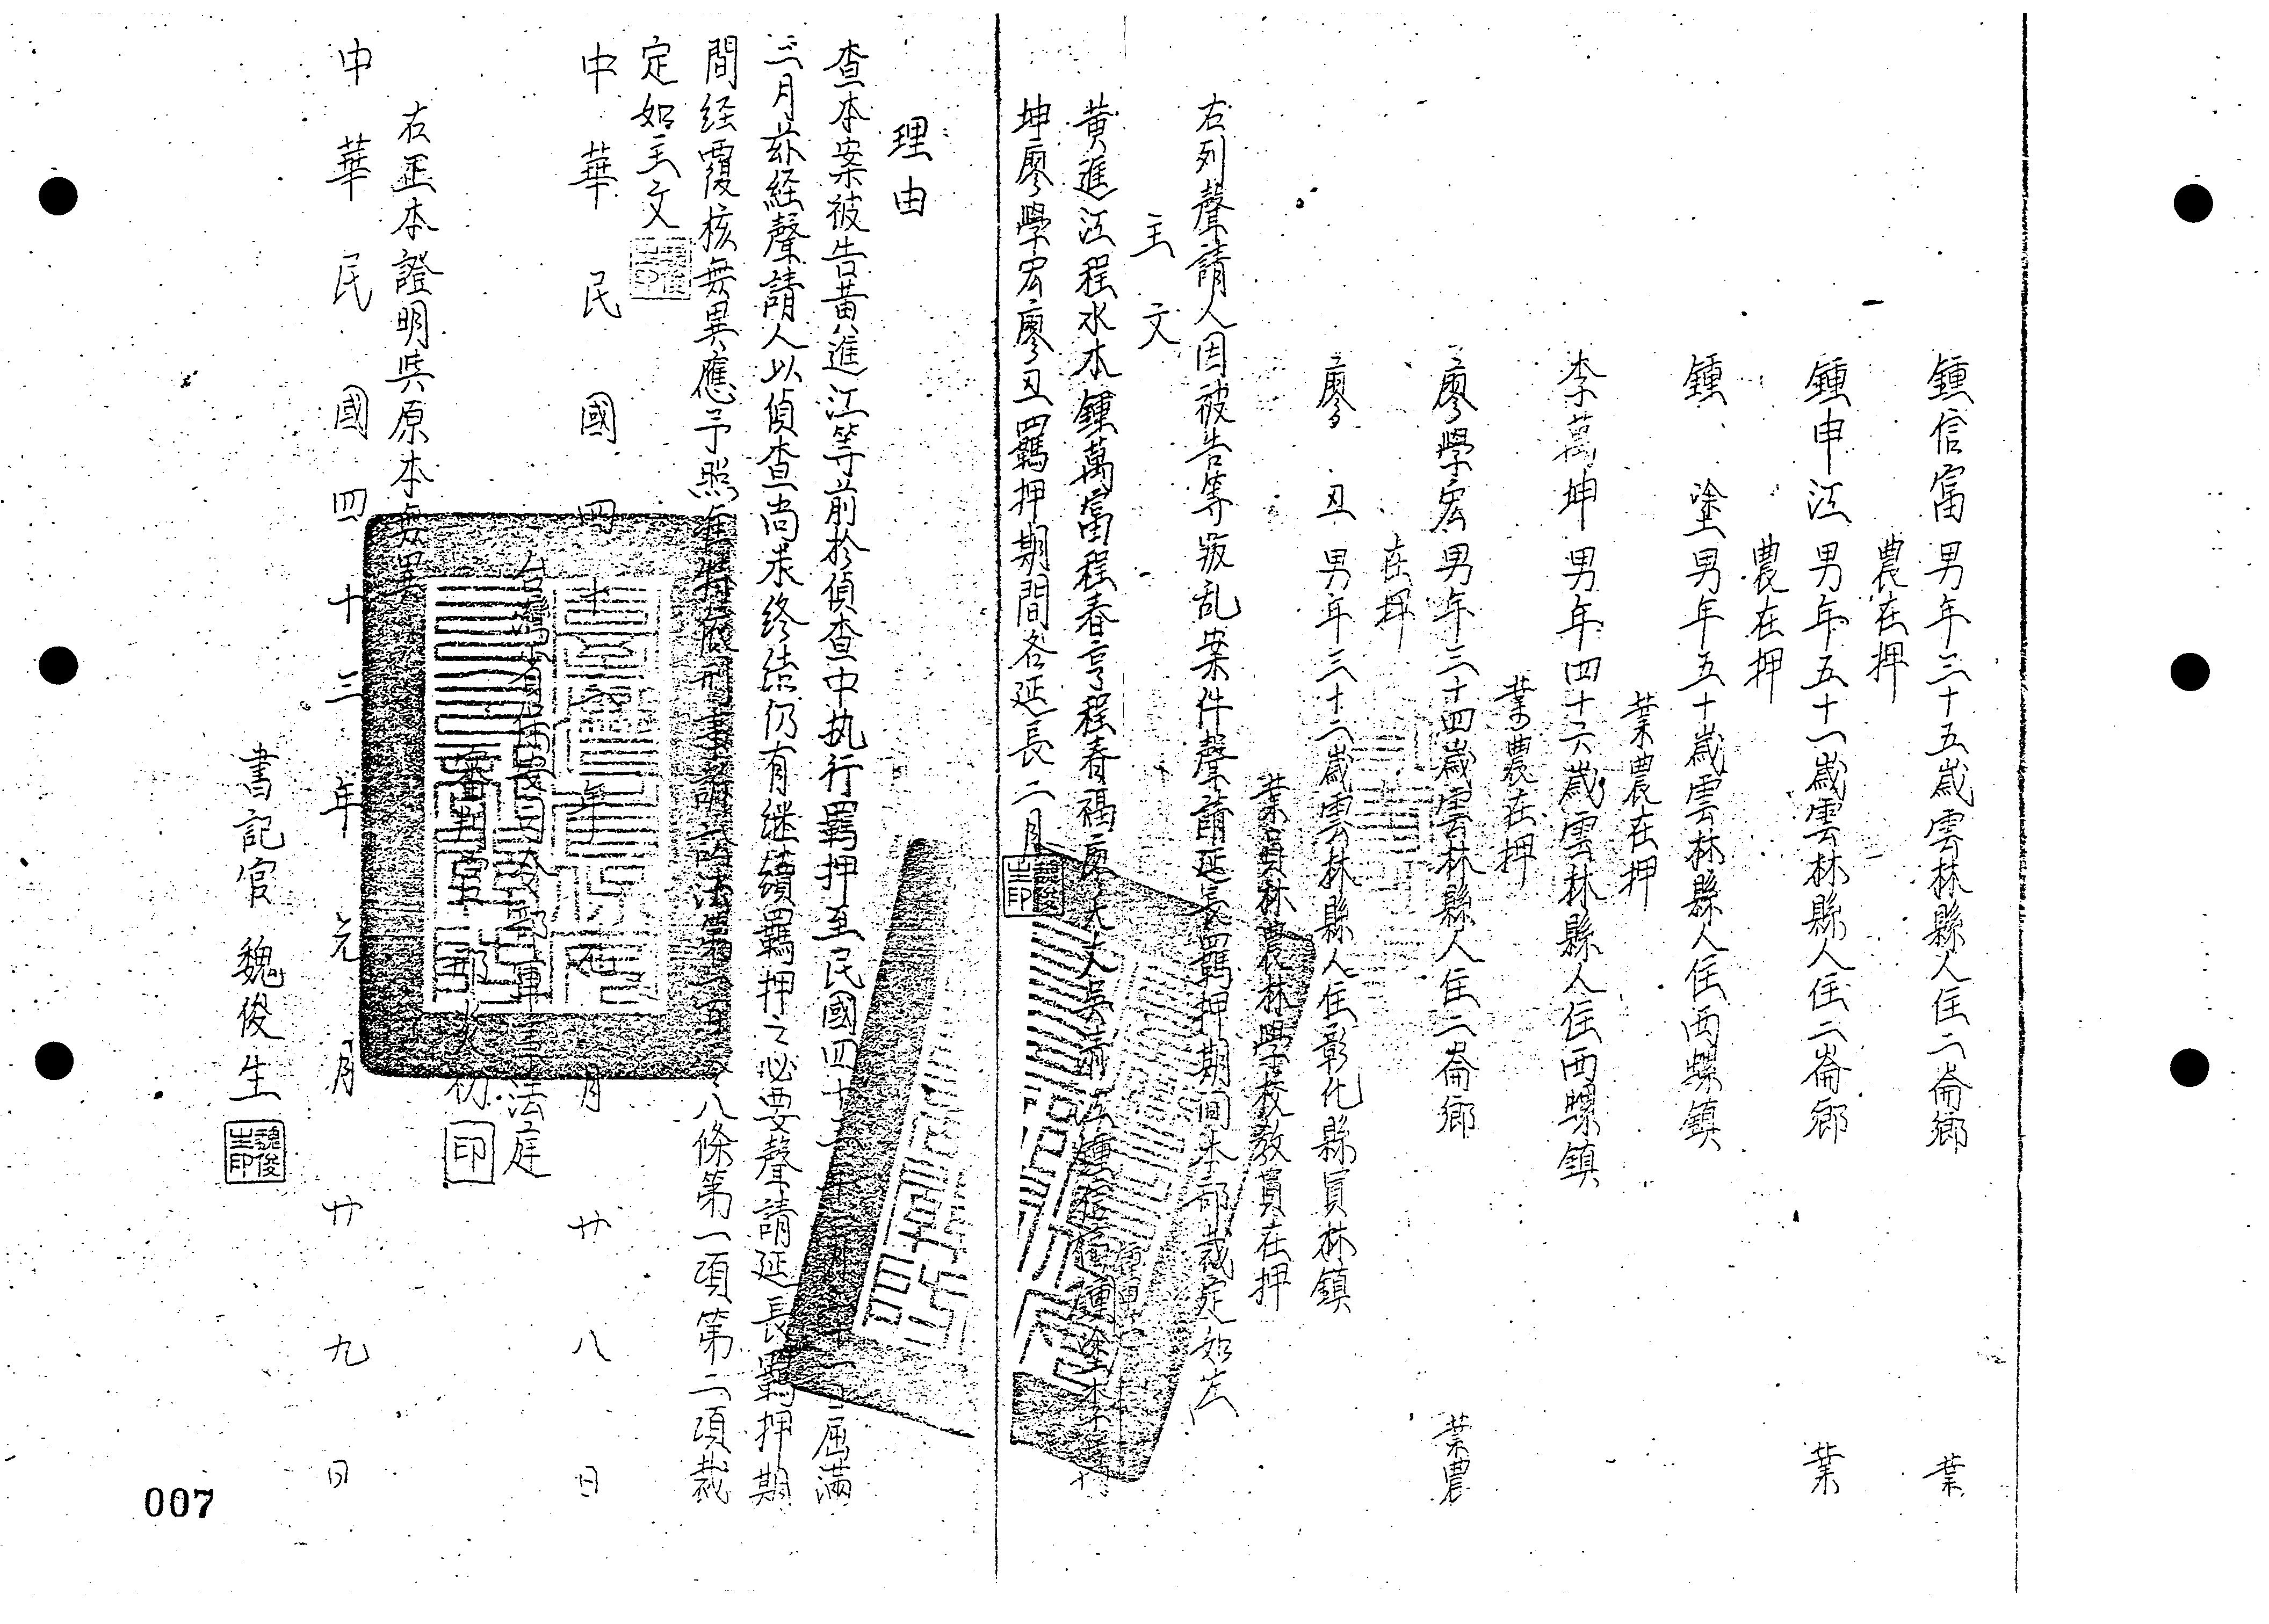 鍾信富男年三十五歲雲林縣人住二崙鄉 業
農在押
鍾申江男年五十一歲雲林縣人住二崙鄉 業
農在押
鍾 塗男年五十歲雲林縣人住西螺鎮
業農在押
李萬坤男年四十六歲雲林縣人住西螺鎮
業農在押
廖學宏男年三十四歲雲林縣人住二崙鄉 業農
在押
廖 丑男年三十二歲雲林縣人住彰化縣員林鎮
業員林農林學校教員在押
右列聲請人因被告等叛乱案件聲請延長羈押期間本部裁定如左
主文
黃進江程水木鍾萬富程春亨程春福廖大木吳清江鍾信富鍾塗李萬
坤廖學宏廖丑四羈押期間各延長二月
理由
查本案被告黃進江等前於偵查中执行羈押至民國四十三年 屆滿
三月茲経聲請人以偵查尚未終結仍有継續羈押之必要聲請延長羈押期
間経覆核無異應予照准特依刑事訴訟法第一百零八條第一項第二項裁
定如主文
中華民國四十三年元月廿八日
台灣省保安司令部軍法庭
審判官 邢炎初 印
右正本證明與原本無異
中華民國四十三年元月廿九日
書記官 魏俊生
魏俊生印
007